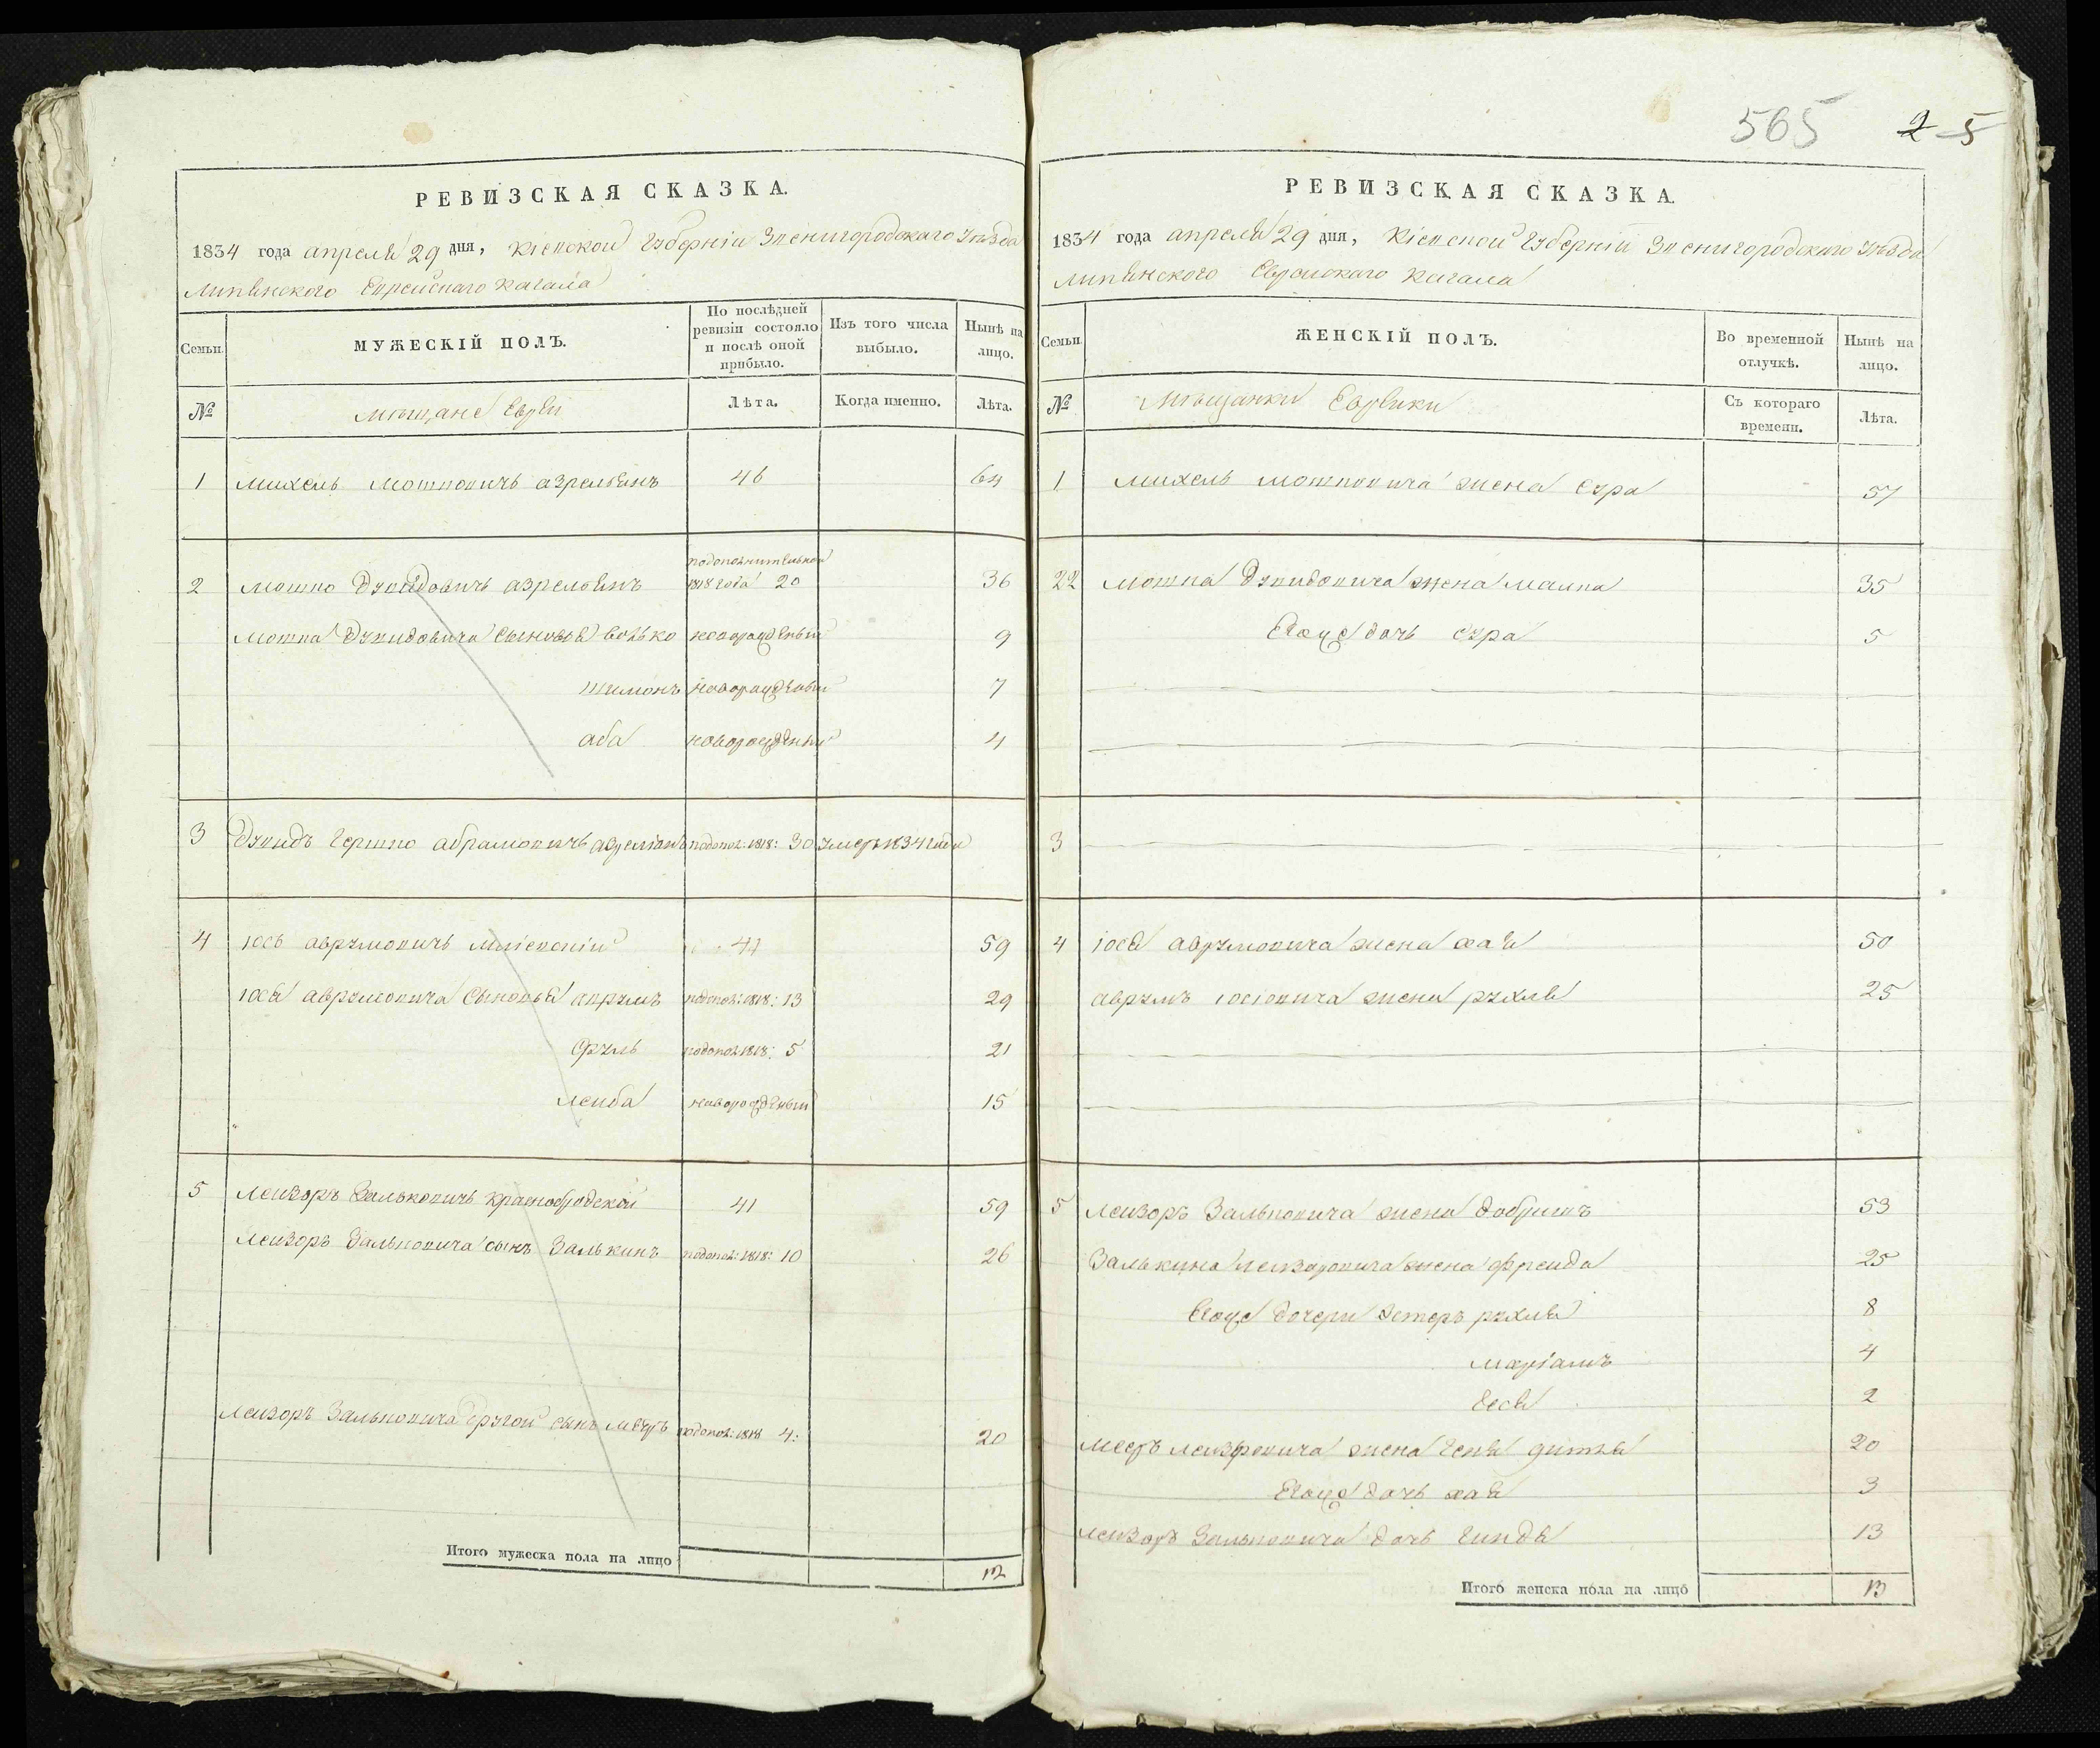 565 2 5
РЕВИЗСКАЯ СКАЗКА.
1834 года апреля 29 дня, Кіевской Губерніи Звенигородскаго уѣзда
Липянского Еврейскаго Кагала
Семьи.
МУЖЕСКІЙ ПОЛЪ.
По послѣдней
ревизіи состояло
и послѣ оной
прибыло.
Изъ того числа
выбыло.
Нынѣ на
лицо.
№
Мещане Евреи
Лѣта.
Когда именно.
Лѣта.
1 михель мошковичъ 46 64
2 мошко Дувидовичъ 1818 года 20 36
мошка Дувидовича сыновья волько новорожденый 9
шимонъ новорожденый 7
аба новорожденый 4
3 Дувидъ Гершко абрамовичъ подопол: 1818: 30 умеръ 1834 года
4 іось аврумовичъ 41 59
іося аврумовича сыновья аврумъ подопол: 1818: 13 29
сруль подопол: 1818: 5 21
лейба новорожденый 15
5 лейзоръ Зальковичъ краснобродскій 41 59
лейзоръ Зальковича сынъ Залькинъ подопол: 1818: 10 26
лейзоръ Зальковича другой сынъ мееръ подопол: 1818 4: 20
Итого мужеска пола на лицо 12
РЕВИЗСКАЯ СКАЗКА.
1834 года апреля 29 дня, Кіевской Губерніи Звенигородского уѣзда
Липянского Еврейскаго Кагала
Семьи.
ЖЕНСКІЙ ПОЛЪ.
Во временной
отлучкѣ.
Нынѣ на
лицо.
№
Мѣщанки Еврейки
Съ котораго
времени.
Лѣта.
1 михель мошковича жена сура 57
22 мошка Дувидовича жена малка 35
Егоже дочь сура 5
3
4 іося аврумовича жена хая 50
аврумъ іосіовича жена рухля 25
5 лейзоръ Зальковича жена добришъ 53
Залькина лейзоровича жена фрейда 25
Егоже дочери эстеръ рухля 8
маріамъ 4
бася 2
мееръ лейзоровича жена 20
Егоже дочь хая 3
лейзоръ Зальковича дочь гиндя 13
Итого женска пола на лицо 13